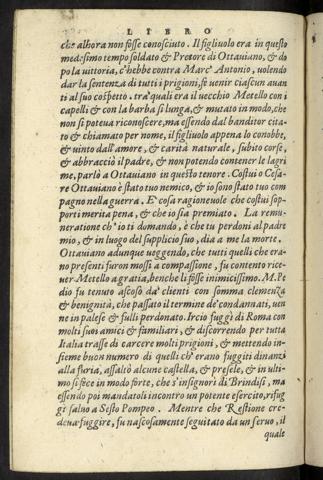 LIBRO
che alhora non fosse conosciuto. Il figliuolo era in questo
medesimo tempo soldato & Pretore di Ottauiano, & do
po la uittoria, c'hebbe contra Marc' Antonio, uolendo
dar la sentenza di tutti i prigioni, fe uenir ciascun auan
ti al suo cospetto, tra' quali era il uecchio Metello con i
capelli & con la barba sì lunga, & mutato in modo, che
non si poteua riconoscere, ma essendo dal banditor cita-
to & chiamato per nome, il figliuolo appena lo conobbe,
& uinto dall'amore, & carità naturale, subito corse,
& abbracciò il padre, & non potendo contener le lagri
me, parlò a Ottauiano in questo tenore. Costui o Cesa-
re Ottauiano è stato tuo nemico, & io sono stato tuo com
pagno nella guerra. E' cosa ragioneuole che costui sop-
porti merita pena, & che io sia premiato. La remu-
neratione ch'io ti domando, è che tu perdoni al padre
mio, & in luogo del supplicio suo, dia a me la morte.
Ottauiano adunque ueggendo, che tutti quelli che era-
no presenti furon mossi a compassione, fu contento rice-
uer Metello a gratia, benche li fosse inimicissimo. M. Pe
dio fu tenuto ascoso da' clienti con somma clemenza
& benignità, che passato il termine de' condannati, uen
ne in palese & fulli perdonato. Ircio fuggè di Roma con
molti suoi amici & familiari, & discorrendo per tutta
Italia trasse di carcere molti prigioni, & mettendo in-
sieme buon numero di quelli ch'erano fuggiti dinanzi
alla furia, assaltò alcune castella, & presele, & in ulti-
mo si fece in modo forte, che s'insignorì di Brindisi, ma
essendo poi mandatoli incontro un potente esercito, rifug
gì saluo a Sesto Pompeo. Mentre che Restione cre-
deua fuggire, fu nascosamente seguitato da un seruo, il
quale